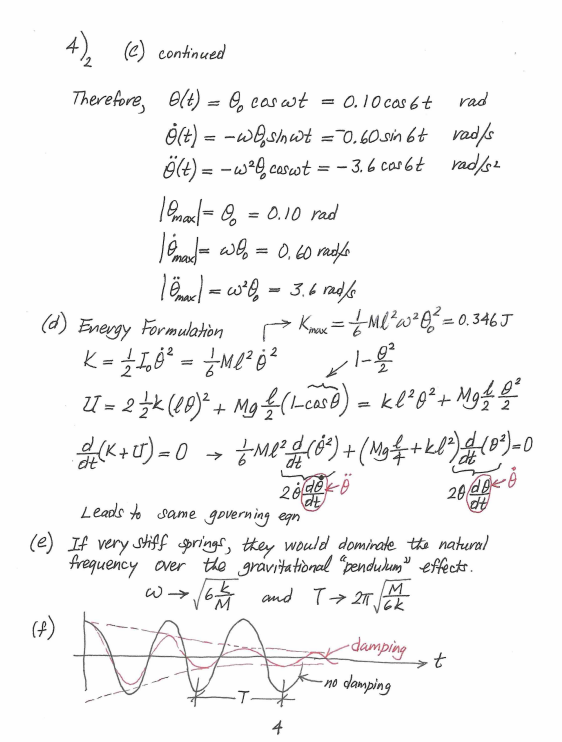 4)₂ (c) continued
Therefore, θ(t) = θ₀ cos ωt = 0.10 cos 6t rad
θ̇(t) = −ωθ₀ sin ωt = −0.60 sin 6t rad/s
θ̈(t) = −ω²θ₀ cos ωt = −3.6 cos 6t rad/s²
|θmax| = θ₀ = 0.10 rad
|θ̇max| = ωθ₀ = 0.60 rad/s
|θ̈max| = ω²θ₀ = 3.6 rad/s
(d) Energy Formulation → Kmax = 1/6 Mℓ²ω²θ₀² = 0.346 J
K = 1/2 I₀θ̇² = 1/6 Mℓ²θ̇² 1 − θ²/2
U = 2 1/2 k(ℓθ)² + Mg ℓ/2 (1−cosθ) = kℓ²θ² + Mg ℓ/2 θ²/2
d/dt (K+U) = 0 → 1/6 Mℓ² d/dt (θ̇²) + (Mg ℓ/4 + kℓ²) d/dt (θ²) = 0
2θ̇ dθ̇/dt ← θ̈ 2θ dθ/dt ← θ̇
Leads to same governing eqn
(e) If very stiff springs, they would dominate the natural
frequency over the gravitational "pendulum" effects.
ω → √(6 k/M) and T → 2π √(M/6k)
(f)
damping
t
no damping
T
4